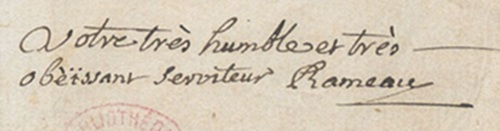 Votre très humble et très
obèissant serviteur Rameau